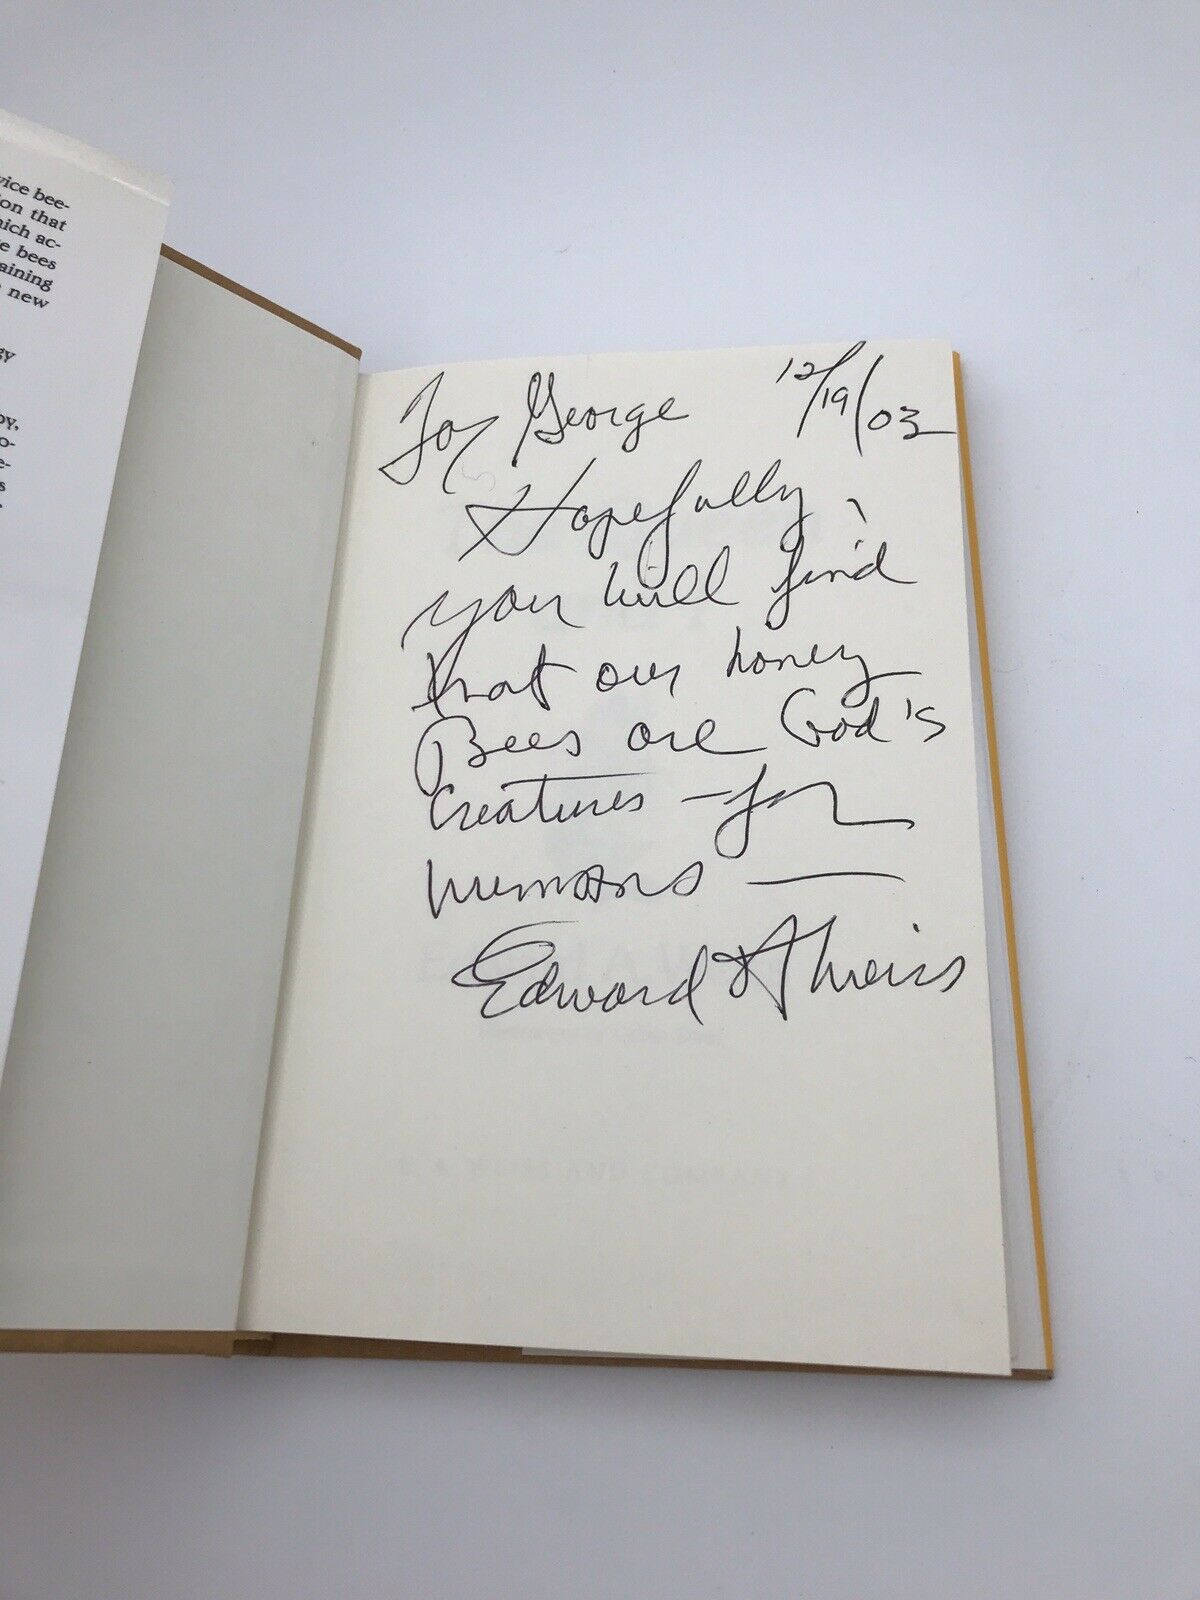 vice bee-
ion that
hich ac-
e bees
aining
new
gy
py,
o-
e-
s
For George 12/19/03
Hopefully,
you will find
that our honey
Bees are God's
Creatures - for
humans —
Edward A Weiss
AND COMPANY